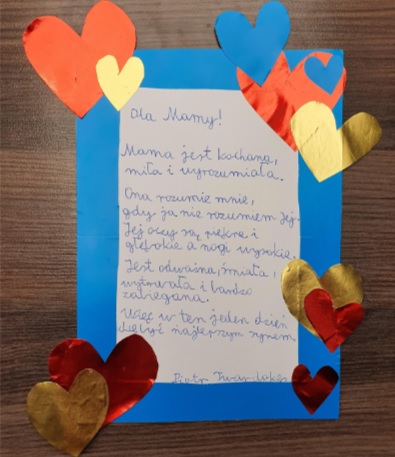 Dla Mamy!
Mama jest kochana,
miła i wyrozumiała.
Ona rozumie mnie,
gdy ja nie rozumiem jej.
Jej oczy są piękne i
głębokie a nogi wysokie.
Jest odważna, śmiała,
wytrwała i bardzo
zabiegana.
Więc w ten jeden dzień
najlepszym synem
Piotr